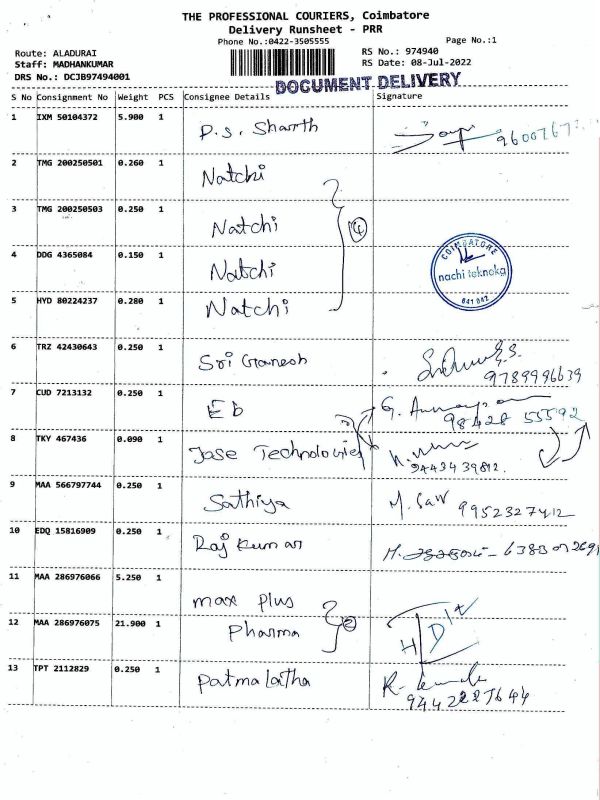 THE PROFESSIONAL COURIERS, Coimbatore
Delivery Runsheet - PRR
Phone No.:0422-3505555
Page No.:1
Route: ALADURAI
RS No.: 974940
Staff: MADHANKUMAR
RS Date: 08-Jul-2022
DRS No.: DCJB97494001
DOCUMENT DELIVERY
S No Consignment No Weight PCS Consignee Details Signature
1 IXM 50104372 5.900 1 P.S. Sharrth
2 TMG 200250501 0.260 1 Natchi
3 TMG 200250503 0.250 1 Natchi
4
4 DDG 4365084 0.150 1 Natchi
COIMBATORE
nachi teknoka
641 042
5 HYD 80224237 0.280 1 Natchi
6 TRZ 42430643 0.250 1 Sri Ganesh
9789996639
7 CUD 7213132 0.250 1 Eb G.
98428 55592
8 TKY 467436 0.090 1 Jase Technologies
9443439812.
9 MAA 566797744 0.250 1 Sathiya M. Saw 9952327412
10 EDQ 15816909 0.250 1 Raj Kumar
11 MAA 286976066 5.250 1 max plus
12 MAA 286976075 21.900 1 Pharma 2
13 TPT 2112829 0.250 1 Patmalatha R.
9442227644